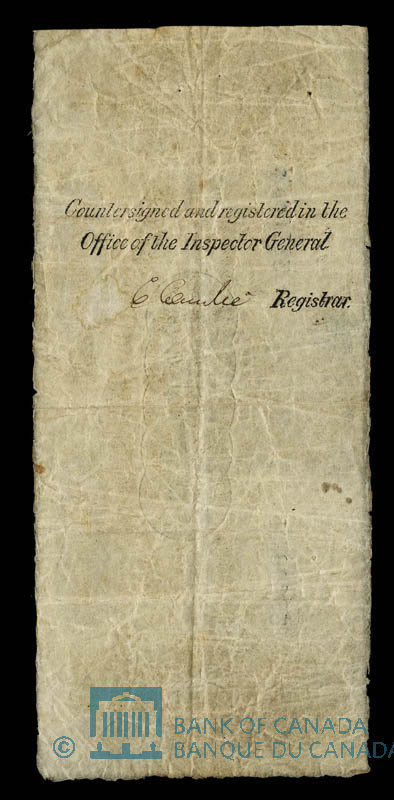 Countersigned and registered in the
Office of the Inspector General
Registrar.
© BANK OF CANADA
BANQUE DU CANADA